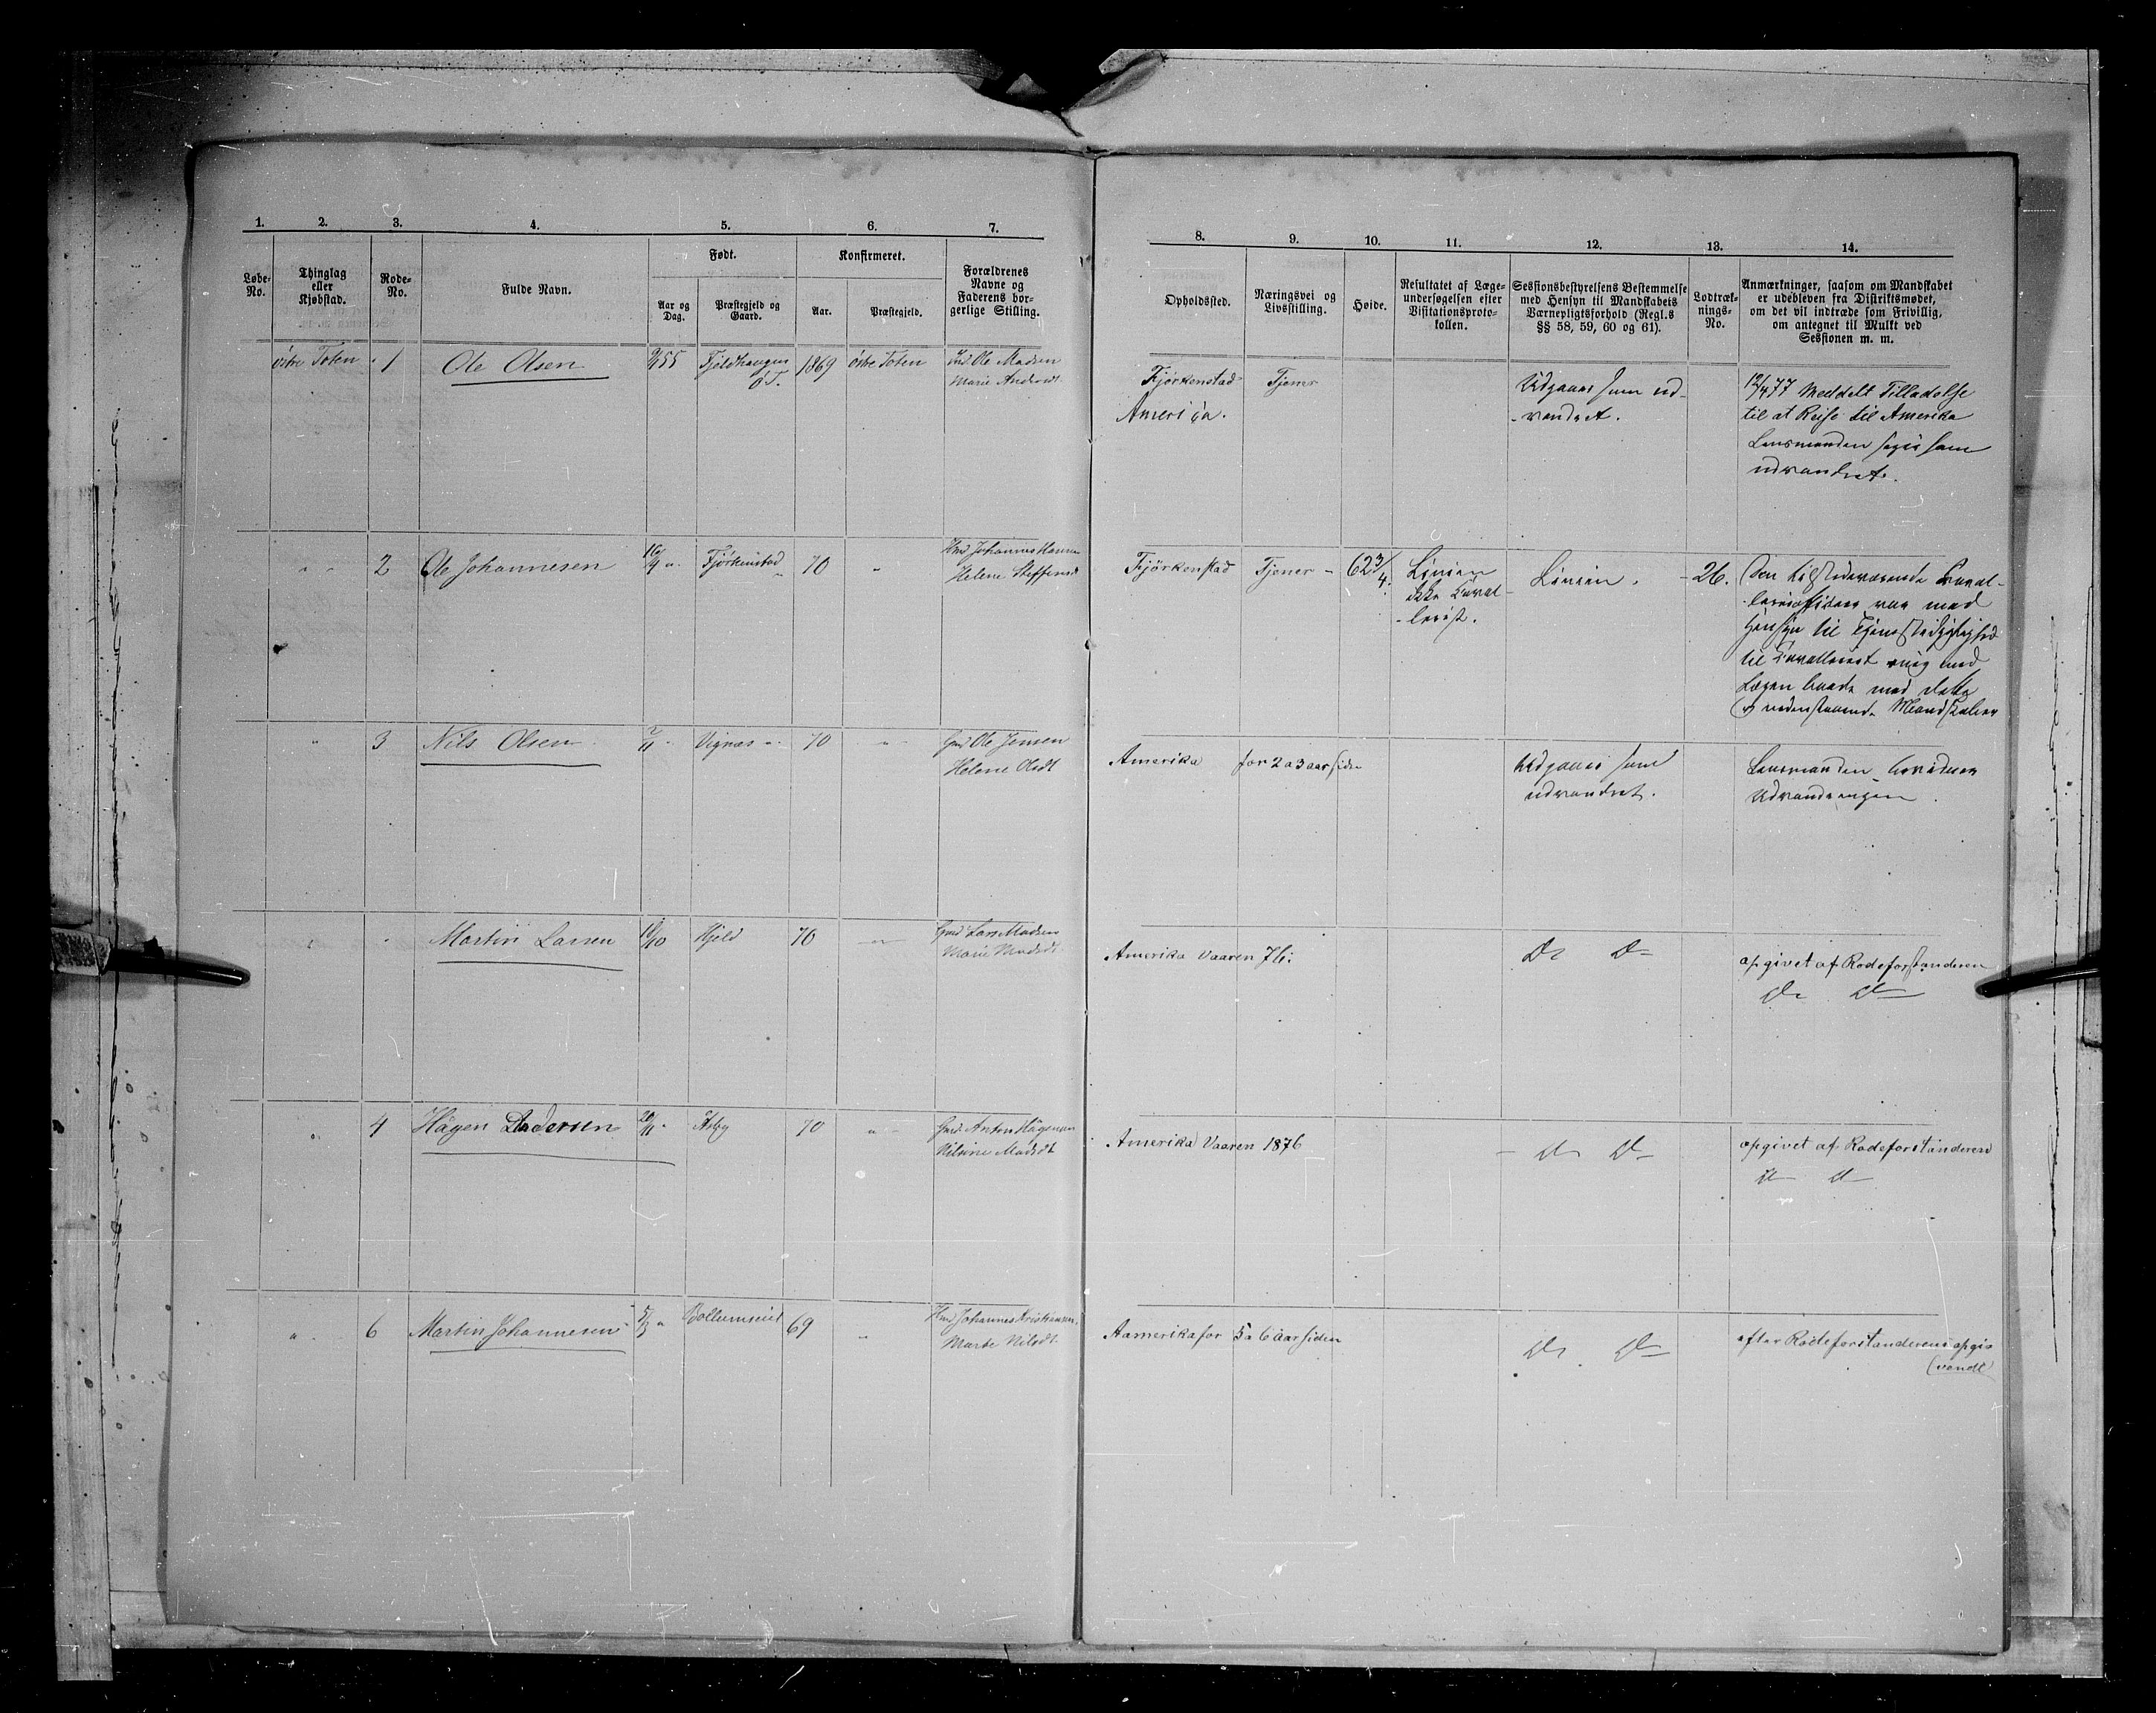 1. 2. 3. 4. 5. 6. 7.
Løbe-No.
Thinglag eller Kjøbstad.
Rode-No.
Fulde Navn.
Født.
Aar og Dag.
Præstegjeld og Gaard.
Konfirmeret.
Aar.
Præstegjeld.
Forældrenes Navne og Faderens borgerlige Stilling.
8. 9. 10. 11. 12. 13. 14.
Opholdssted.
Næringsvei og Livsstilling.
Høide.
Resultatet af Lægeundersøgelsen efter Visitationsprotokollen.
Sessionsbestyrelsens Bestemmelse med Hensyn til Mandskabets Værnepligtsforhold (Regl.s §§ 58, 59, 60 og 61).
Lodtræknings-No.
Anmærkninger, saasom om Mandskabet er udebleven fra Distriktsmødet, om det vil indtræde som Frivillig, om antegnet til Mulkt ved Sessionen m. m.
östre Toten 1 Ole Olsen 55 Fjeldhaugen 1869 östre Toten Ole Madsen
ö T. Marie Andersdt
Fjörkenstad Tjener Udgaaer som ud- 12/4 77 Meddelt Tilladelse
Amerika. -vandret. til at Reise til Amerika
Lensmanden som
udvandret.
" " 2 Ole Johannesen 16/9 " Fjörkenstad 70 " Johannes Hansen
Helene Steffensdt
Fjörkenstad Tjener - 62 3/4 Linien Linien. 26. Den tilstedeværende Caval-
ikke Caval- var med
-lerist. Hensyn til Tjenestedygtighed
til Cavallerist enig med
Lægen baade med dette
nedenstaaende Mandskaber
" 3 Nils Olsen 2/11 " Vignæs " 70 " Ole Jensen
Helene Olsdt
Amerika for 2 a 3 aar siden Udgaaer som Lensmanden
udvandret. Udvandringen
Martin Larsen 10/10 Hjeld 70 " Lars Madsen
Marie Madsdt
Amerika Vaaren 76: Do Do opgivet af Rodeforstanderen
Do Do
" 4 Hågen Andersen 20/11 " Åsby 70 " Anton Hågensen
Nilsine Madsdt
Amerika Vaaren 1876 - Do Do opgivet af Rodeforstanderen
Do Do
" 6 Martin Johannesen 5/3 " 69 " Johannes Kristiansen
Marte Nilsdt
Aamerika for 5 a 6 aar siden Do Do efter Rodeforstanderens opgi-
(vende